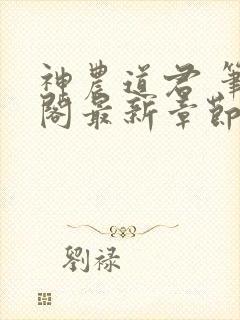 神農道君 筆
閣最新章節
劉祿